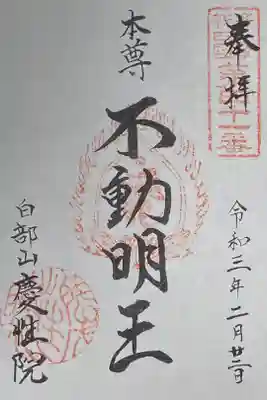 奉拝
令和三年二月廿二日
本尊
不動明王
白部山慶性院